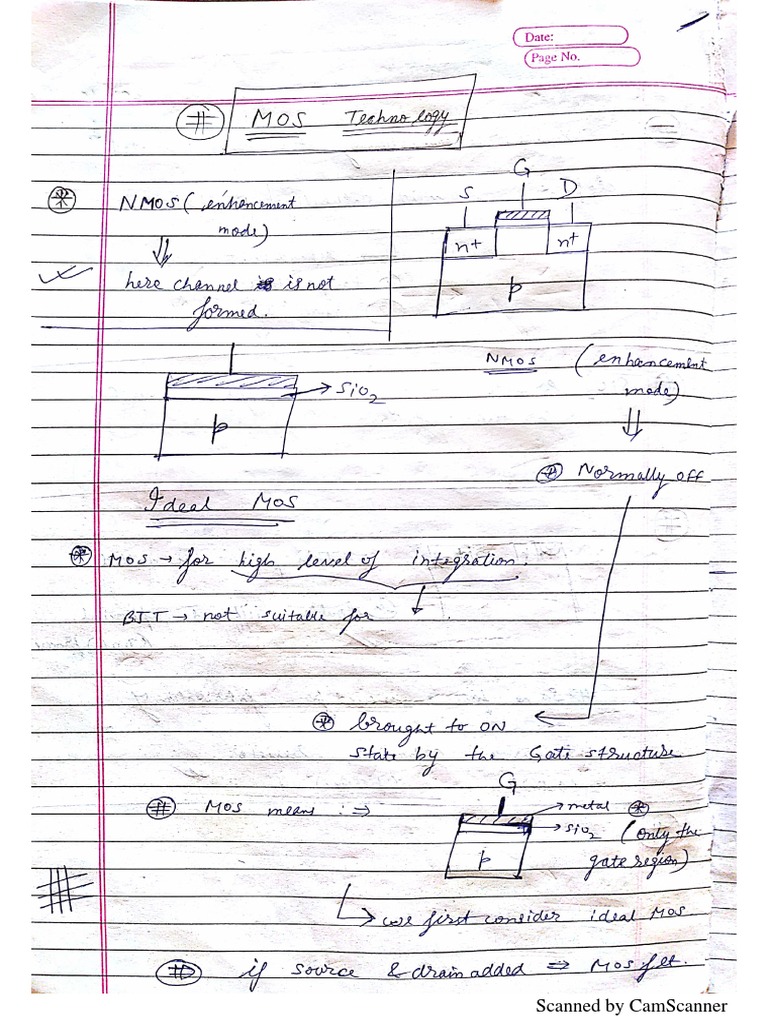 Date:
Page No.
# MOS Technology
* NMOS (enhancement
mode)
⇓
here channel is not
formed.
G
S D
n+ n+
p
NMOS (enhancement
mode)
⇓
→ SiO2
p
* Normally off
Ideal MOS
* MOS → for high level of integration.
BJT → not suitable for
* brought to ON
state by the Gate structure
G
# MOS means :⇒
→ metal *
→ SiO2 (only the
p gate region)
→ we first consider ideal MOS
# if source & drain added ⇒ MOS fet.
Scanned by CamScanner